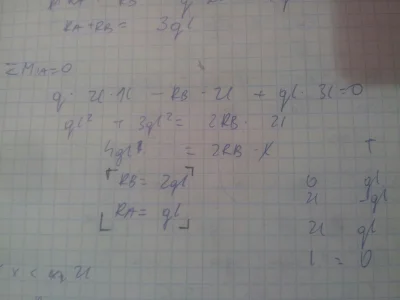 RA+RB = 3ql
ΣMA=0
q · 2l · 1l - RB · 2l + ql · 3l = 0
ql² + 3ql² = 2RB · 2l
4ql² = 2RB · l
RB = 2ql
RA = ql
T
0 ql
2l -3ql
2l ql
1 = 0